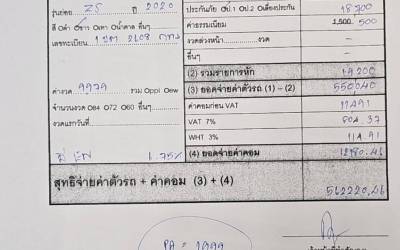 รุ่นย่อย ZS ปี 2020
ประกันภัย ป.1 ป.2 คุ้มครองประกัน 18,700
สี ดำ ขาว เทา น้ำตาล อื่นๆ
ค่าธรรมเนียม 1,500. 500
เลขทะเบียน 2108 กทม
งวดล่วงหน้า งวด -
อื่นๆ
(2) รวมรายการหัก 19,200
ค่างวด 9,979 รวม Oppi Oew
(3) ยอดจ่ายค่าตัวรถ (1) - (2) 550,040
จำนวนงวด 084 072 060 อื่นๆ
ค่าคอมก่อน VAT 11,491
งวดแรกวันที่
VAT 7% 804.37
WHT 3% 114.91
1.75%
(4) ยอดจ่ายค่าคอม 12,180.46
สุทธิจ่ายค่าตัวรถ + ค่าคอม (3) + (4) 562,220.46
PA = 1999